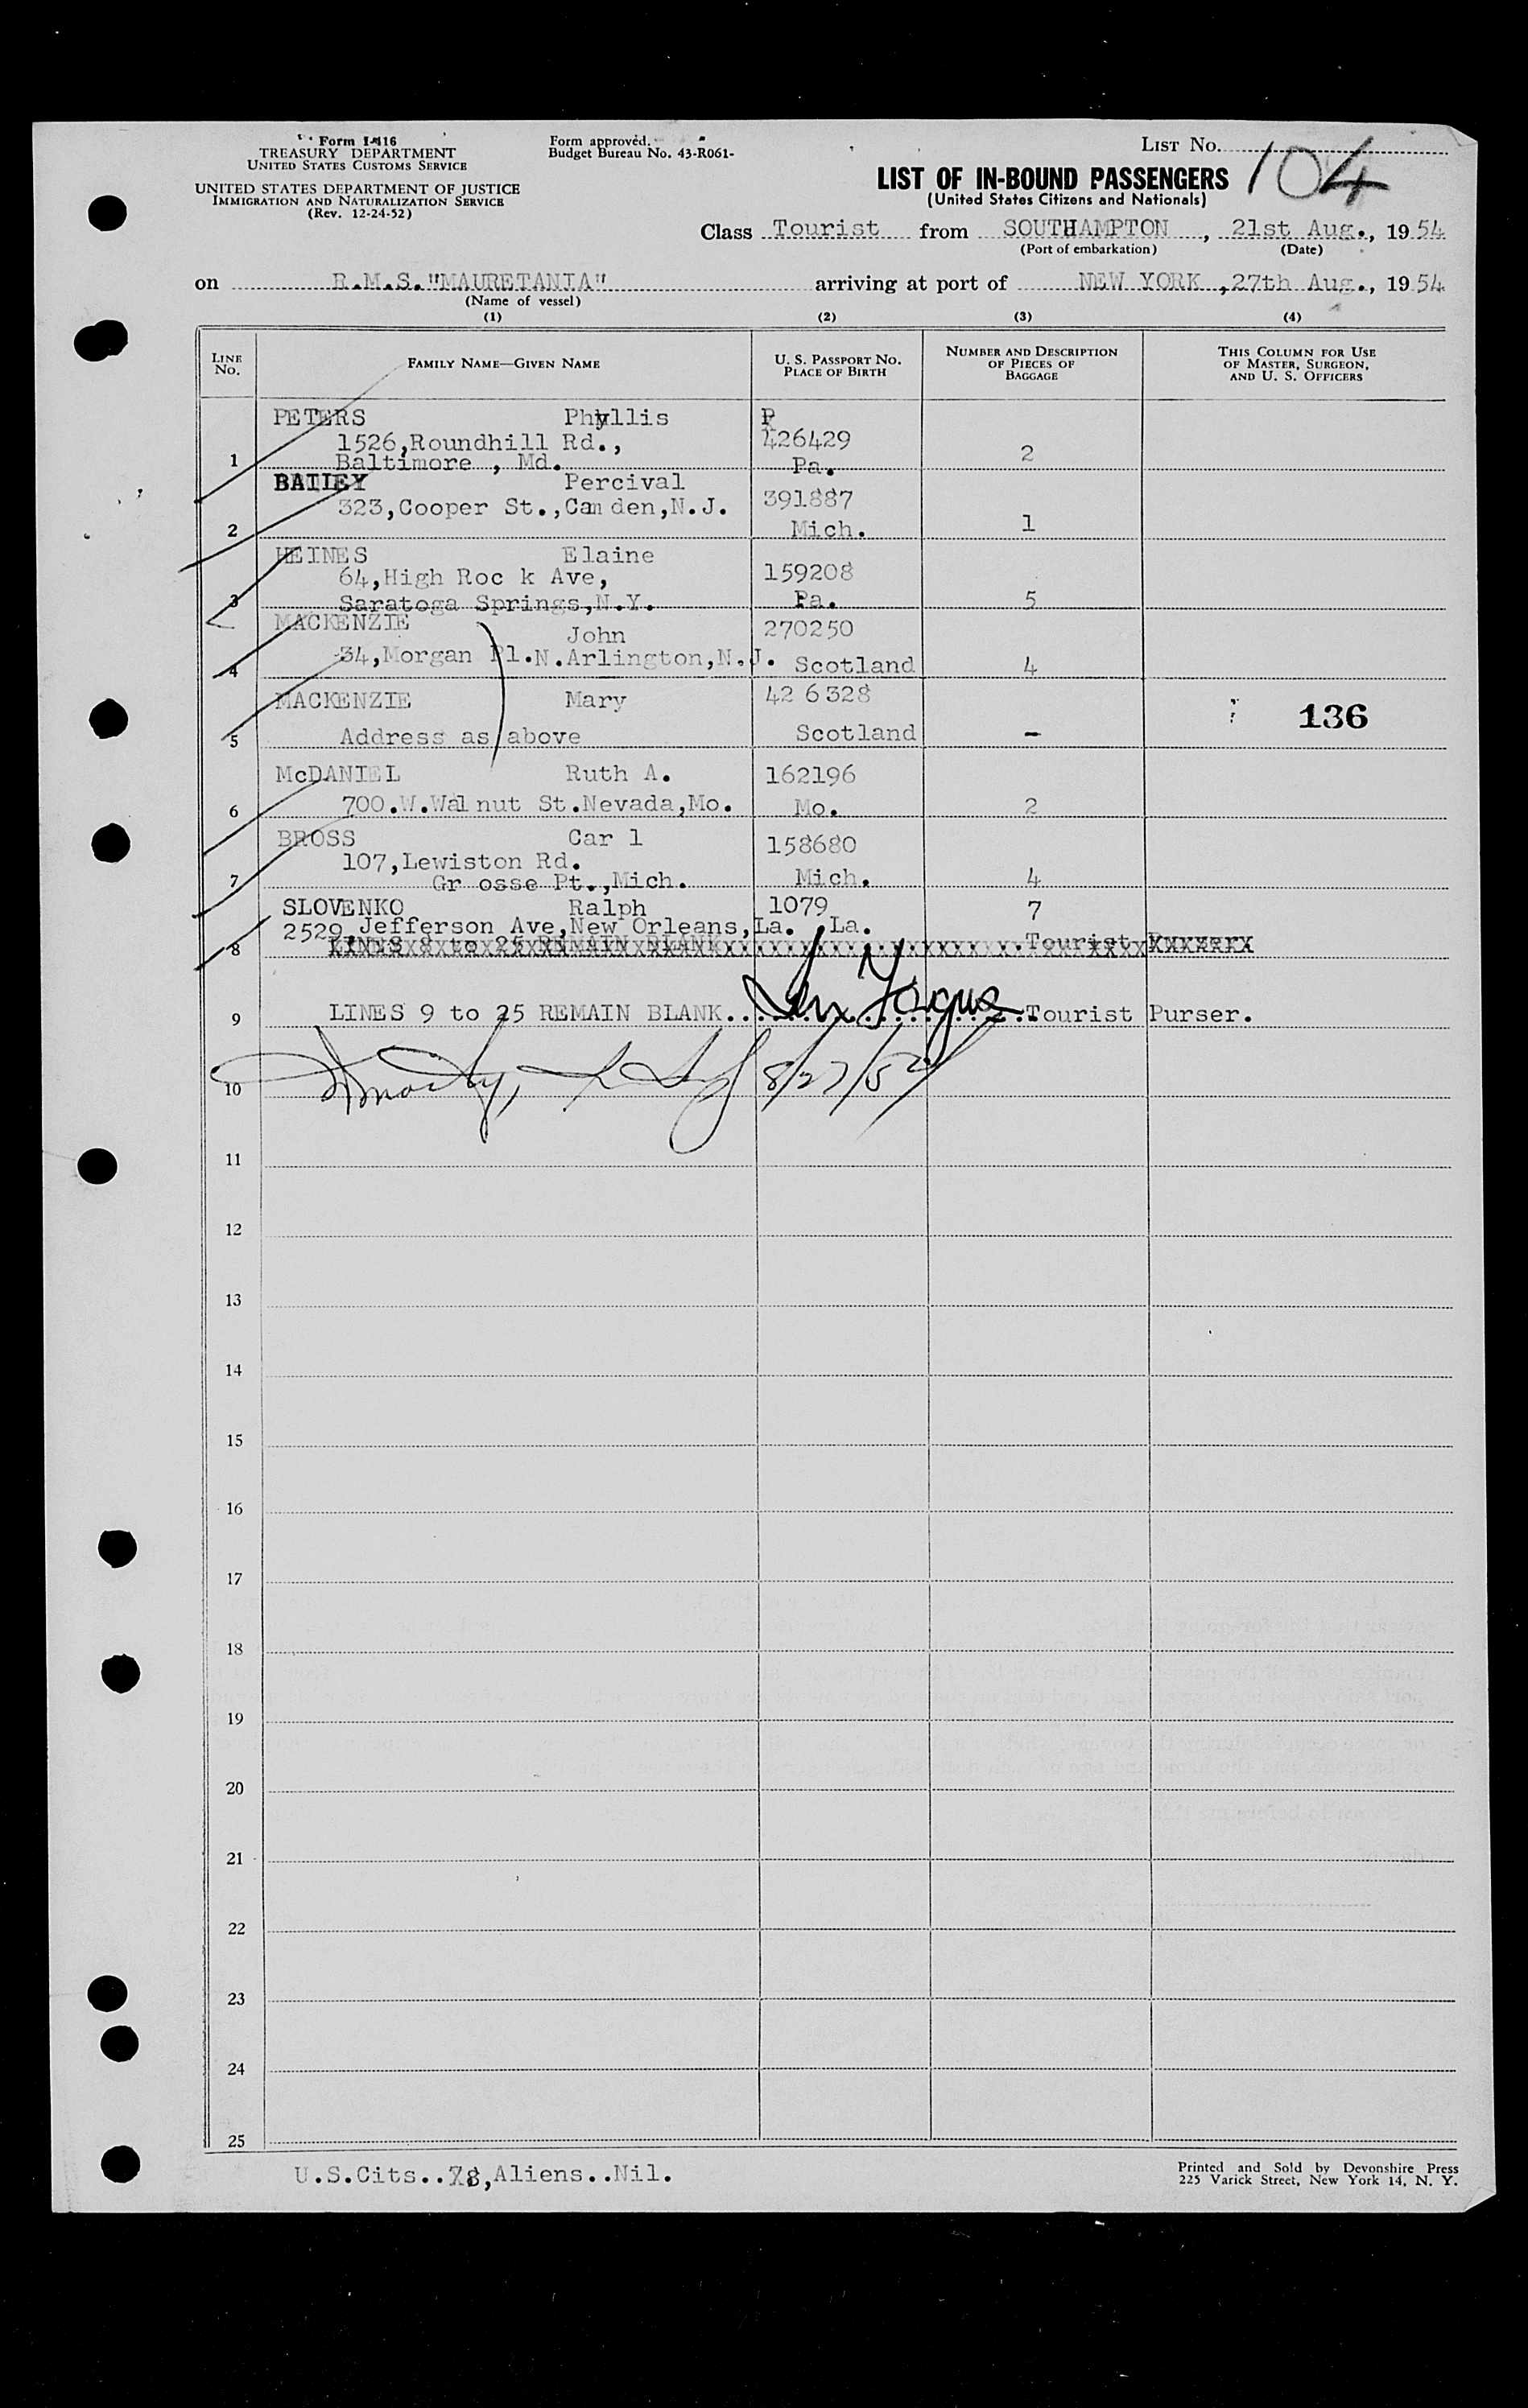 Form I-416
TREASURY DEPARTMENT
UNITED STATES CUSTOMS SERVICE
UNITED STATES DEPARTMENT OF JUSTICE
IMMIGRATION AND NATURALIZATION SERVICE
(Rev. 12-24-52)
Form approved.
Budget Bureau No. 43-R061-
LIST No. 104
LIST OF IN-BOUND PASSENGERS
(United States Citizens and Nationals)
Class Tourist from SOUTHAMPTON, 21st Aug., 1954
(Port of embarkation) (Date)
on R.M.S."MAURETANIA" arriving at port of NEW YORK, 27th Aug., 1954
(Name of vessel)
(1) (2) (3) (4)
LINE No. FAMILY NAME—GIVEN NAME U. S. PASSPORT No. PLACE OF BIRTH NUMBER AND DESCRIPTION OF PIECES OF BAGGAGE THIS COLUMN FOR USE OF MASTER, SURGEON, AND U. S. OFFICERS
PETERS Phyllis
1526,Roundhill Rd., 426429
1 Baltimore , Md. Pa. 2
BAILEY Percival
323,Cooper St.,Camden,N.J. 391887
2 Mich. 1
HEINES Elaine
64,High Roc k Ave, 159208
3 Saratoga Springs,N.Y. Pa. 5
MACKENZIE John 270250
4 34,Morgan Pl.N.Arlington,N.J. Scotland 4
MACKENZIE Mary 42 6328
136
5 Address as above Scotland -
McDANIEL Ruth A. 162196
6 700.W.Walnut St.Nevada,Mo. Mo. 2
BROSS Car l 158680
107,Lewiston Rd.
7 Gr osse Pt.,Mich. Mich. 4
SLOVENKO Ralph 1079 7
2529,Jefferson Ave,New Orleans,La. La.
8 LINES 8 to 25 REMAIN BLANK Tourist Purser
9 LINES 9 to 25 REMAIN BLANK.. Tourist Purser.
10 8/27/54
11
12
13
14
15
16
17
18
19
20
21
22
23
24
25
U.S.Cits..8,Aliens..Nil.
Printed and Sold by Devonshire Press
225 Varick Street, New York 14, N. Y.